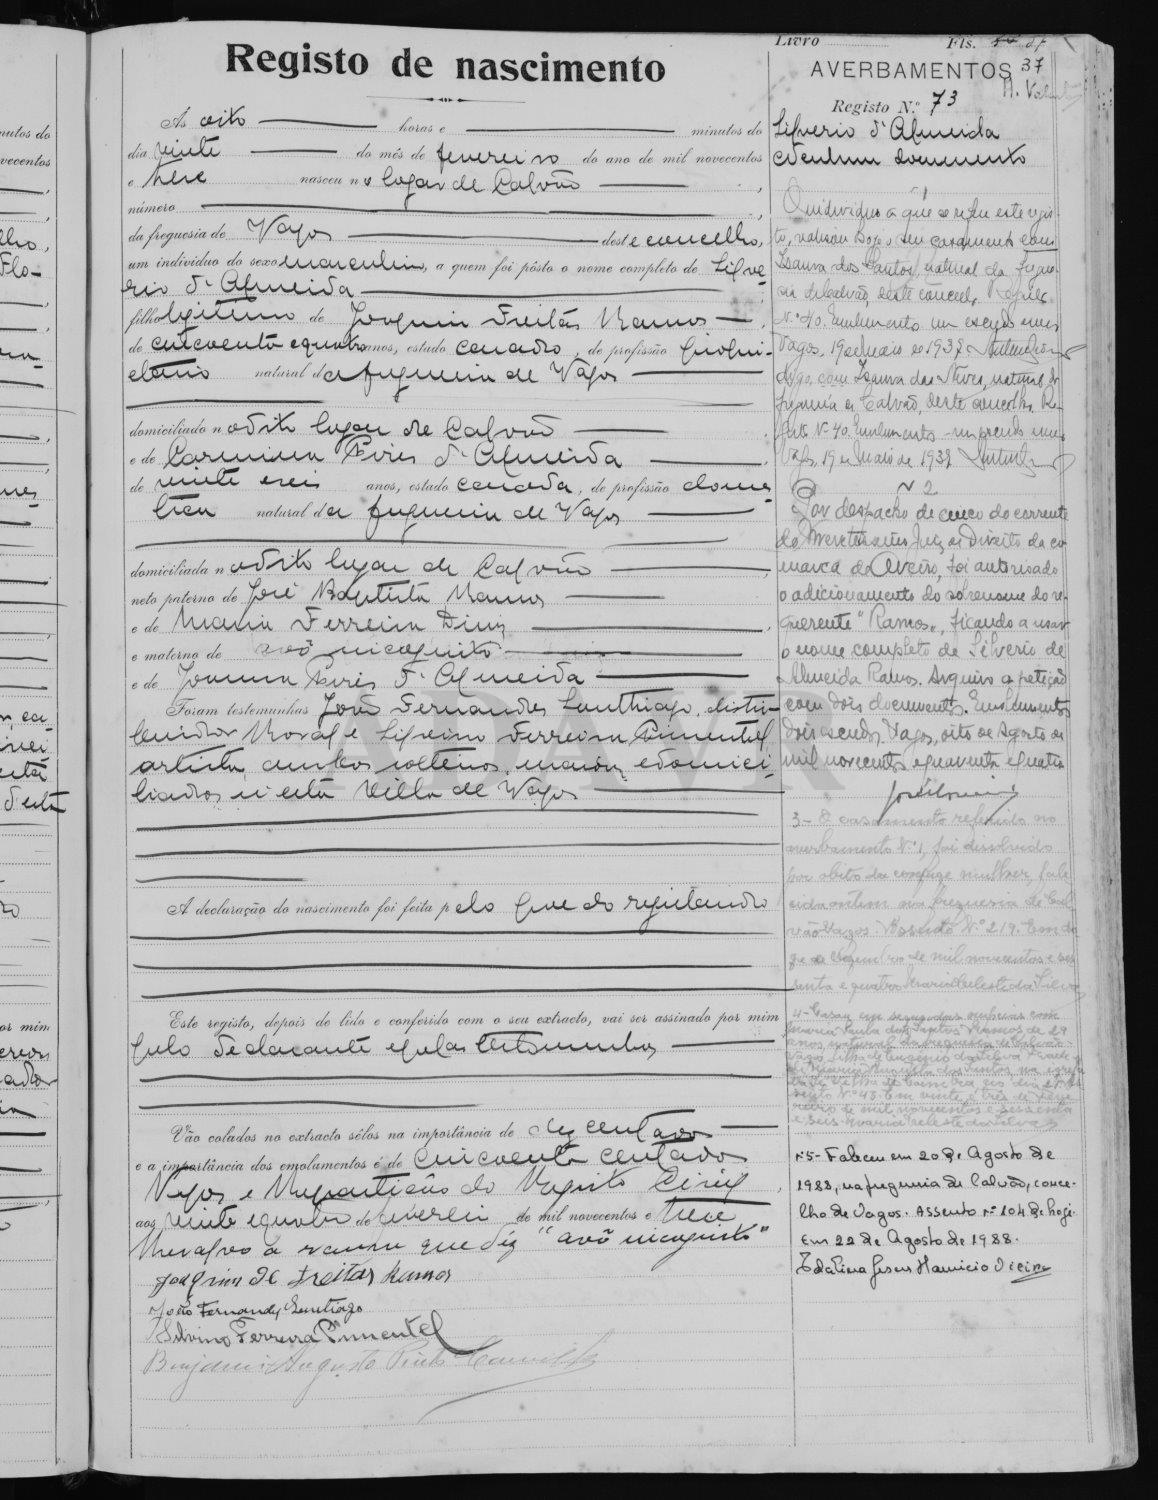 Livro Fls. 37
Registo de nascimento
Às oito horas e minutos do
dia vinte do mês de fevereiro do ano de mil novecentos
e treze nasceu no lugar de Calvão ,
número ,
da freguesia de Vagos deste concelho,
um indivíduo do sexo masculino, a quem foi pôsto o nome completo de Silve
rio d'Almeida
filho legitimo de Joaquim Freitas Ramos
de cincoenta e quatro anos, estado casado, de profissão
natural da freguesia de Vagos
domiciliado no dito lugar de Calvão
e de Carmina Pires d'Almeida
de vinte e seis anos, estado casada, de profissão domes
tica natural da freguesia de Vagos
domiciliada no dito lugar de Calvão
neto paterno de José Baptista Ramos
e de Maria Ferreira Diniz
e materno de avô incognito
e de Joanna Pires d'Almeida
Foram testemunhas João Fernandes Santhiago, distri-
buidor Rural e Silvino Ferreira Pimentel,
artista, ambos solteiros, maiores, e domici-
liados n'esta Villa de Vagos
A declaração do nascimento foi feita pelo pae do registando
Este registo, depois de lido e conferido com o seu extracto, vai ser assinado por mim
pelo declarante e pelas testemunhas
Vão colados no extracto sêlos na importância de dez centavos
e a importância dos emolumentos é de cincoenta centavos
Vagos e Repartição do Registo Civil ,
aos vinte e quatro de fevereiro de mil novecentos e treze
Resalvo a rasura que diz "avô incognito"
Joaquim de Freitas Ramos
João Fernandes Santiago
Silvino Ferreira Pimentel
Benjamim Augusto Pinto
AVERBAMENTOS 37
Registo N.º 73
Silverio d'Almeida
documento
1
O individuo a que se refere este regis-
to, realisou hoje o seu casamento com
Isaura dos Santos, natural da fregue-
sia de Calvão, deste concelho. Registo
N.º 40. Emolumento um escudo
Vagos, 19 de Maio de 1937
digo, com Isaura das Neves, natural da
freguesia de Calvão, deste concelho. Re-
gisto N.º 40. Emolumentos um escudo
Vagos, 19 de Maio de 1937
N.º 2
Por despacho de cinco do corrente
do Meretissimo Juiz de Direito da co
marca de Aveiro, foi autorisado
o adicionamento do sobrenome do re-
querente "Ramos", ficando a usar
o nome completo de Silverio de
Almeida Ramos. Arquivo a petição
com dois documentos. Emolumentos
dois escudos. Vagos, oito de Agosto de
mil novecentos e quarenta e quatro
3- O casamento referido no
averbamento N.º 1, foi dissolvido
por obito da conjuge mulher fale
cida ontem na freguesia de Cal
vão Vagos. Assento N.º 219. Em do
ze de de mil novecentos e ses
senta e quatro Maria Celeste da Silva
4- Casou em segundas nupcias com
Maria dos Santos Ramos de 29
anos, natural da freguesia de Calvão
Vagos, filha de Eugenio da Silva
de Maria dos Santos na igreja
da Sé Velha de Coimbra no dia
N.º 43. Em vinte e tres de
de mil novecentos e sessenta
e seis. Maria Celeste da Silva
Nº5- Faleceu em 20 de Agosto de
1988, na freguesia de Calvão, conce-
lho de Vagos. Assento nº 104 de hoje.
Em 22 de Agosto de 1988.
ADAVR